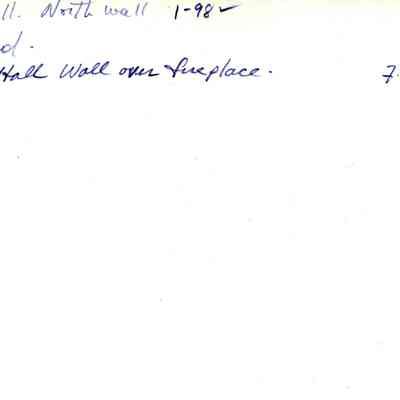 ll. North wall 1-98 ✓
d.
Hall Wall over fireplace. 7.